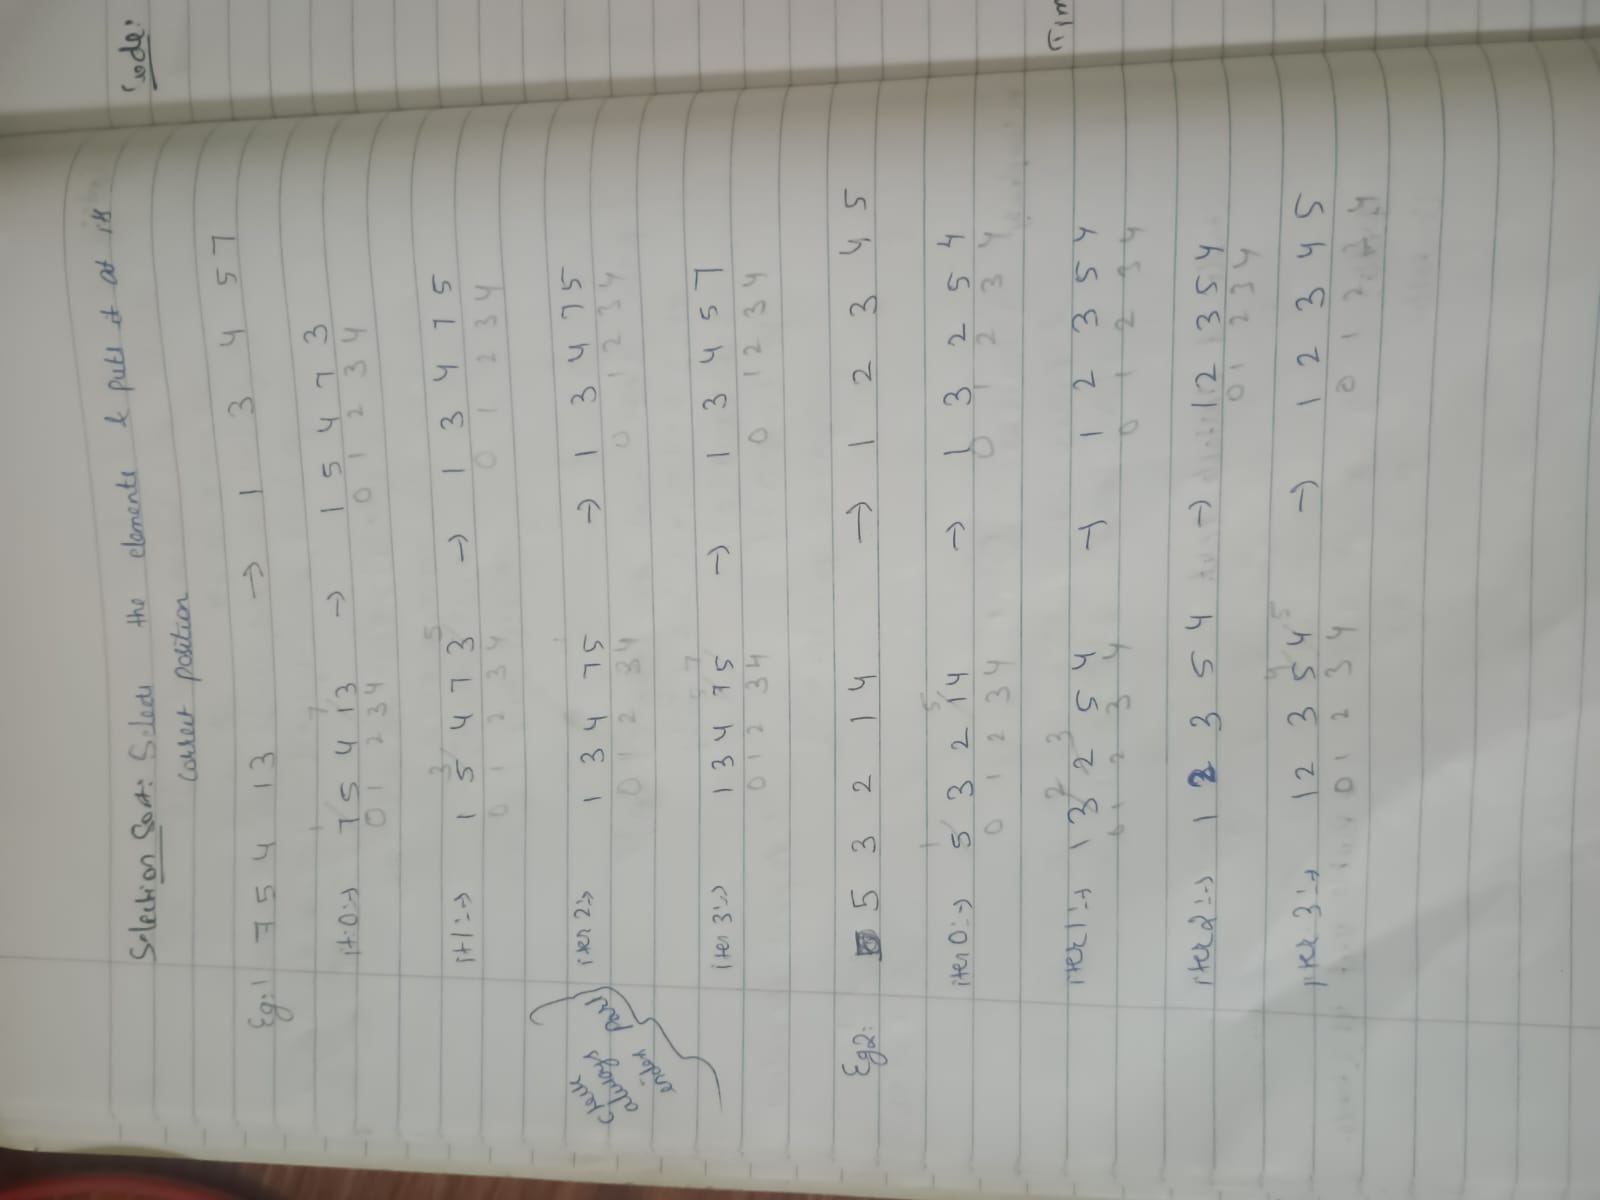 Selection Sort: Selects the elements & puts it at its
correct position
Code:
Eg:1 7 5 4 1 3 → 1 3 4 5 7
1 7
it:0:→ 7 5 4 1 3 → 1 5 4 7 3
0 1 2 3 4 0 1 2 3 4
3 5
it1:→ 1 5 4 7 3 → 1 3 4 7 5
0 1 2 3 4 0 1 2 3 4
check
always
index part
iter 2:→ 1 3 4 7 5 → 1 3 4 7 5
0 1 2 3 4 0 1 2 3 4
5 7
iter 3:→ 1 3 4 7 5 → 1 3 4 5 7
0 1 2 3 4 0 1 2 3 4
Eg2: 5 3 2 1 4 → 1 2 3 4 5
1 5
iter 0:→ 5 3 2 1 4 → 1 3 2 5 4
0 1 2 3 4 0 1 2 3 4
Tim
2 3
iter 1:→ 1 3 2 5 4 → 1 2 3 5 4
0 1 2 3 4 0 1 2 3 4
iter 2:→ 1 2 3 5 4 → 1 2 3 5 4
0 1 2 3 4
4 5
iter 3:→ 1 2 3 5 4 → 1 2 3 4 5
0 1 2 3 4 0 1 2 3 4